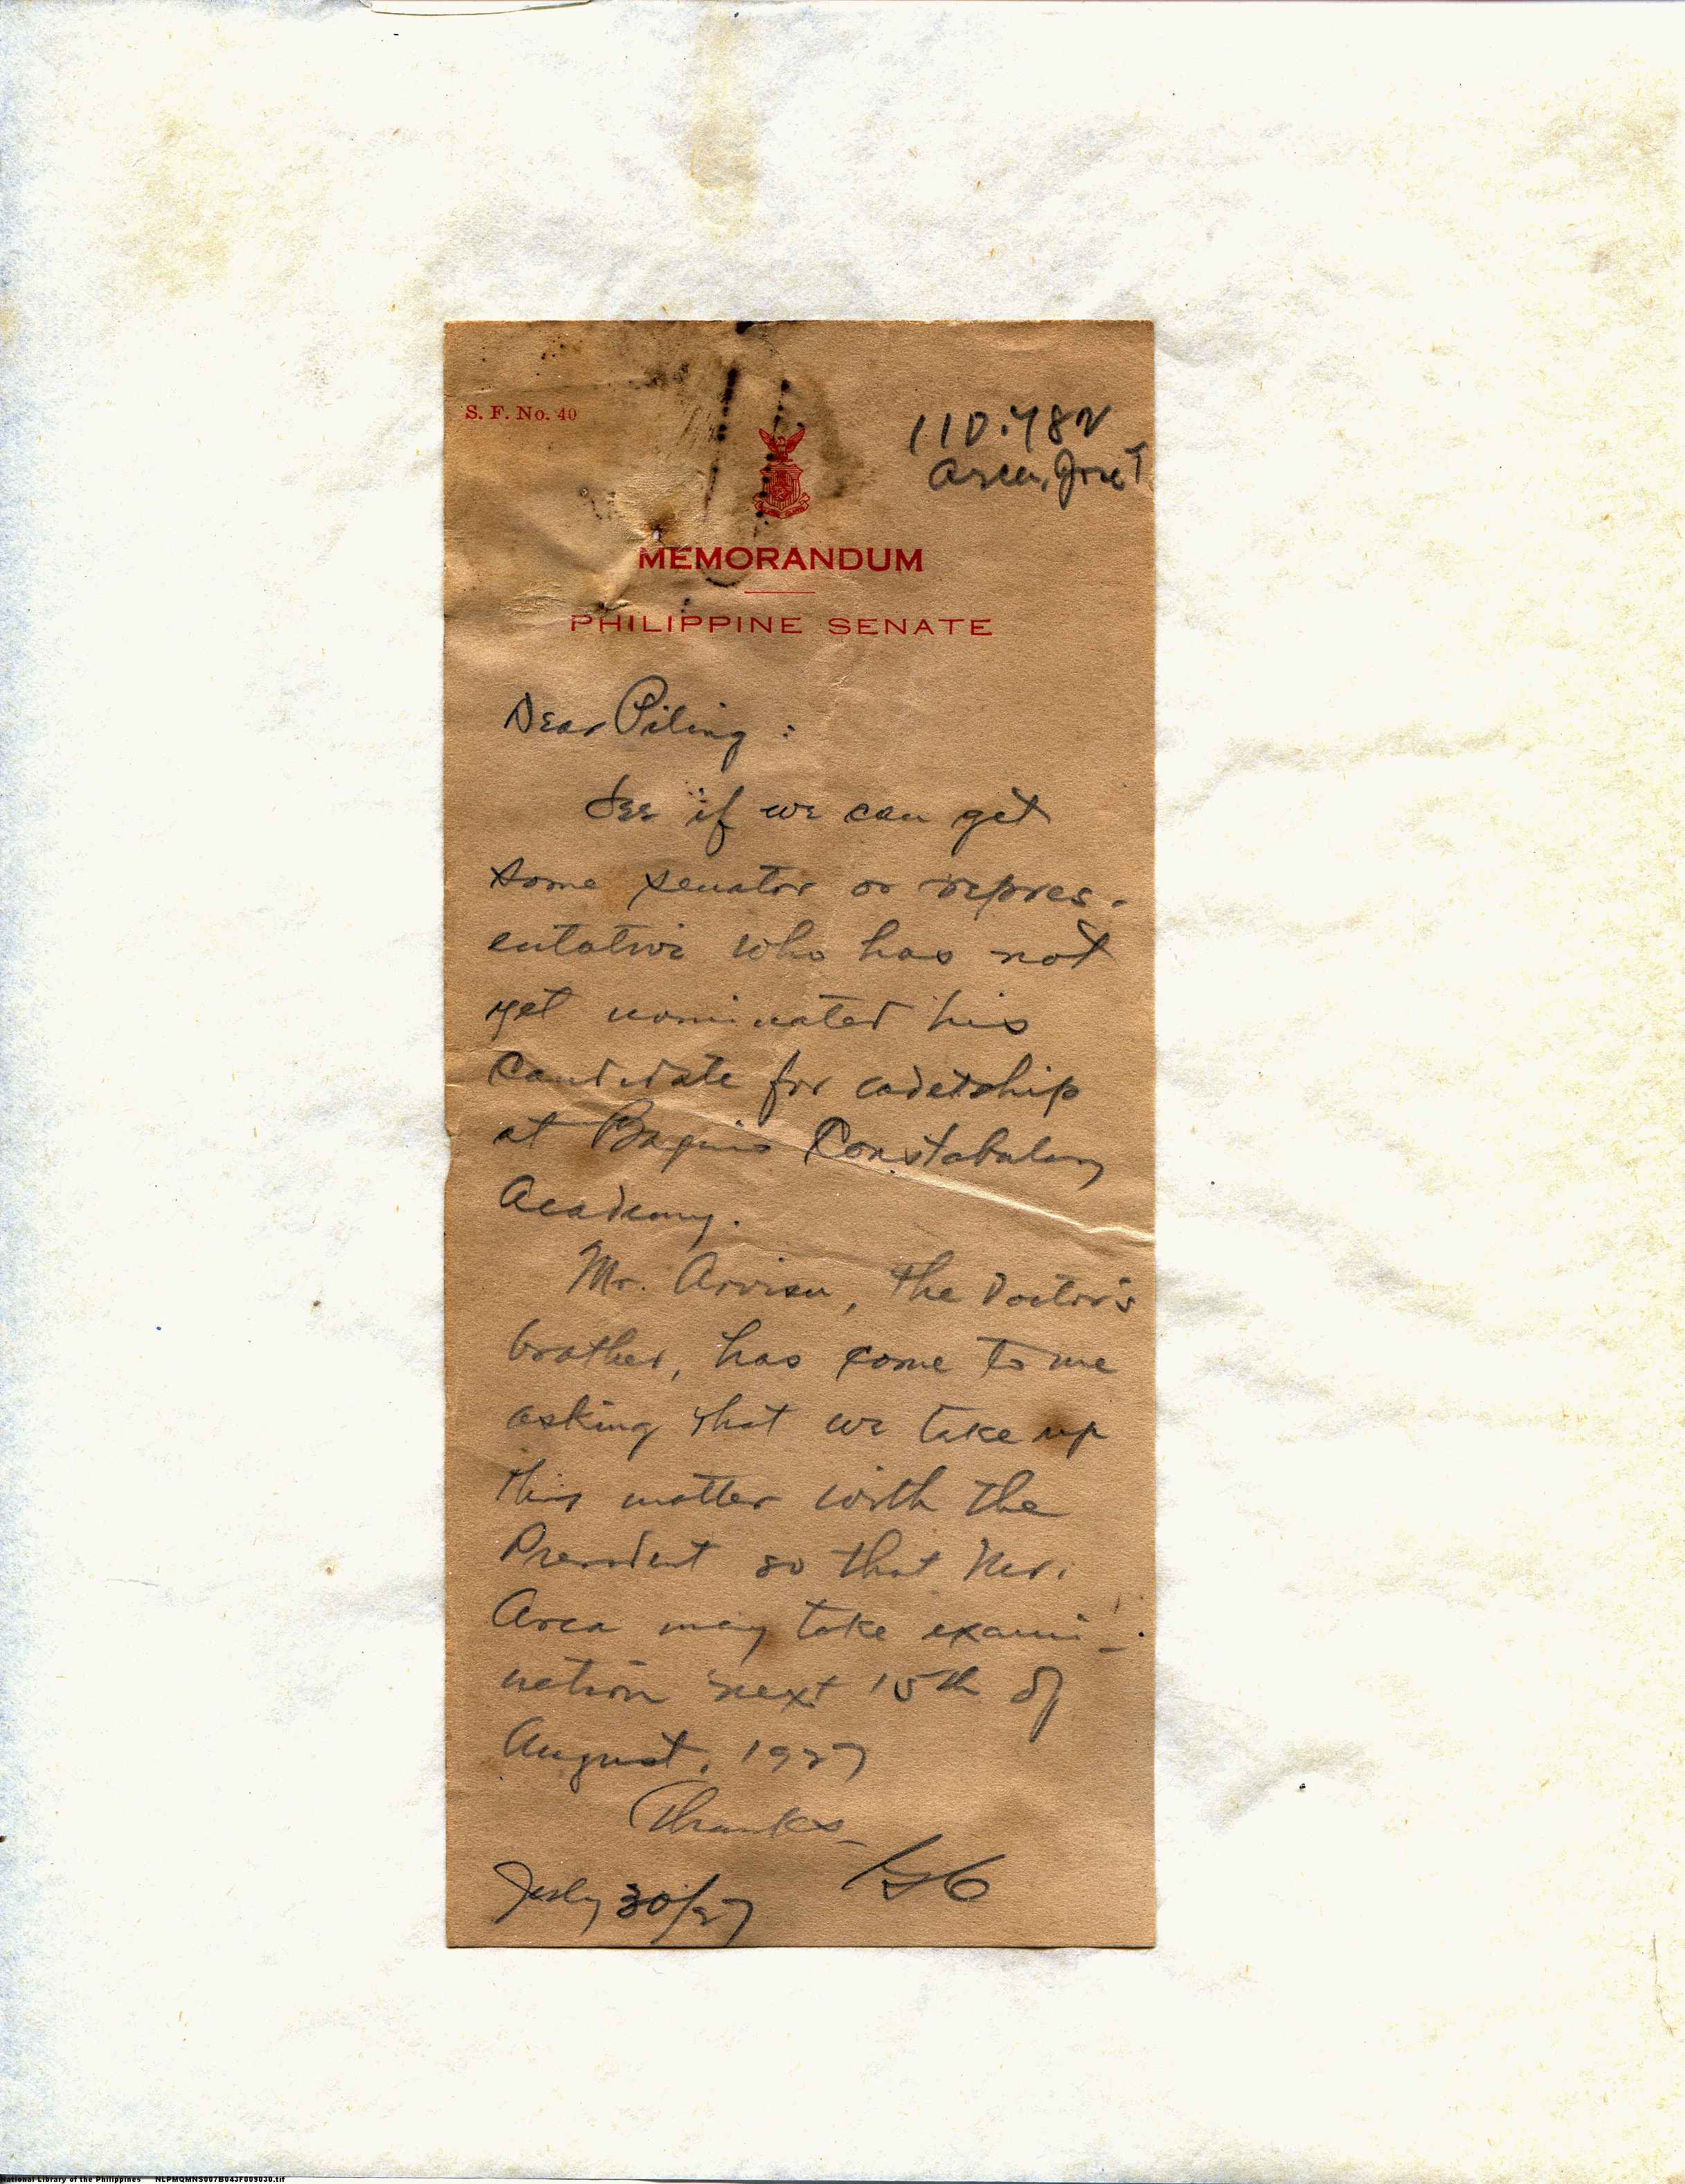 S. F. No. 40
110.782
Arca, Jose T
MEMORANDUM
PHILIPPINE SENATE
Dear Piling :
See if we can get
some senator or repres-
entative who has not
yet nominated his
candidate for cadetship
at Baguio Constabulary
Academy.
Mr. Arvisu, the Doctor's
brother, has come to me
asking that we take up
this matter with the
President so that Mr.
Arca may take exami-
nation next 15th of
August, 1927
Thanks
July 30/27
National Library of the Philippines NLPMQMNS007B043F009030.tif